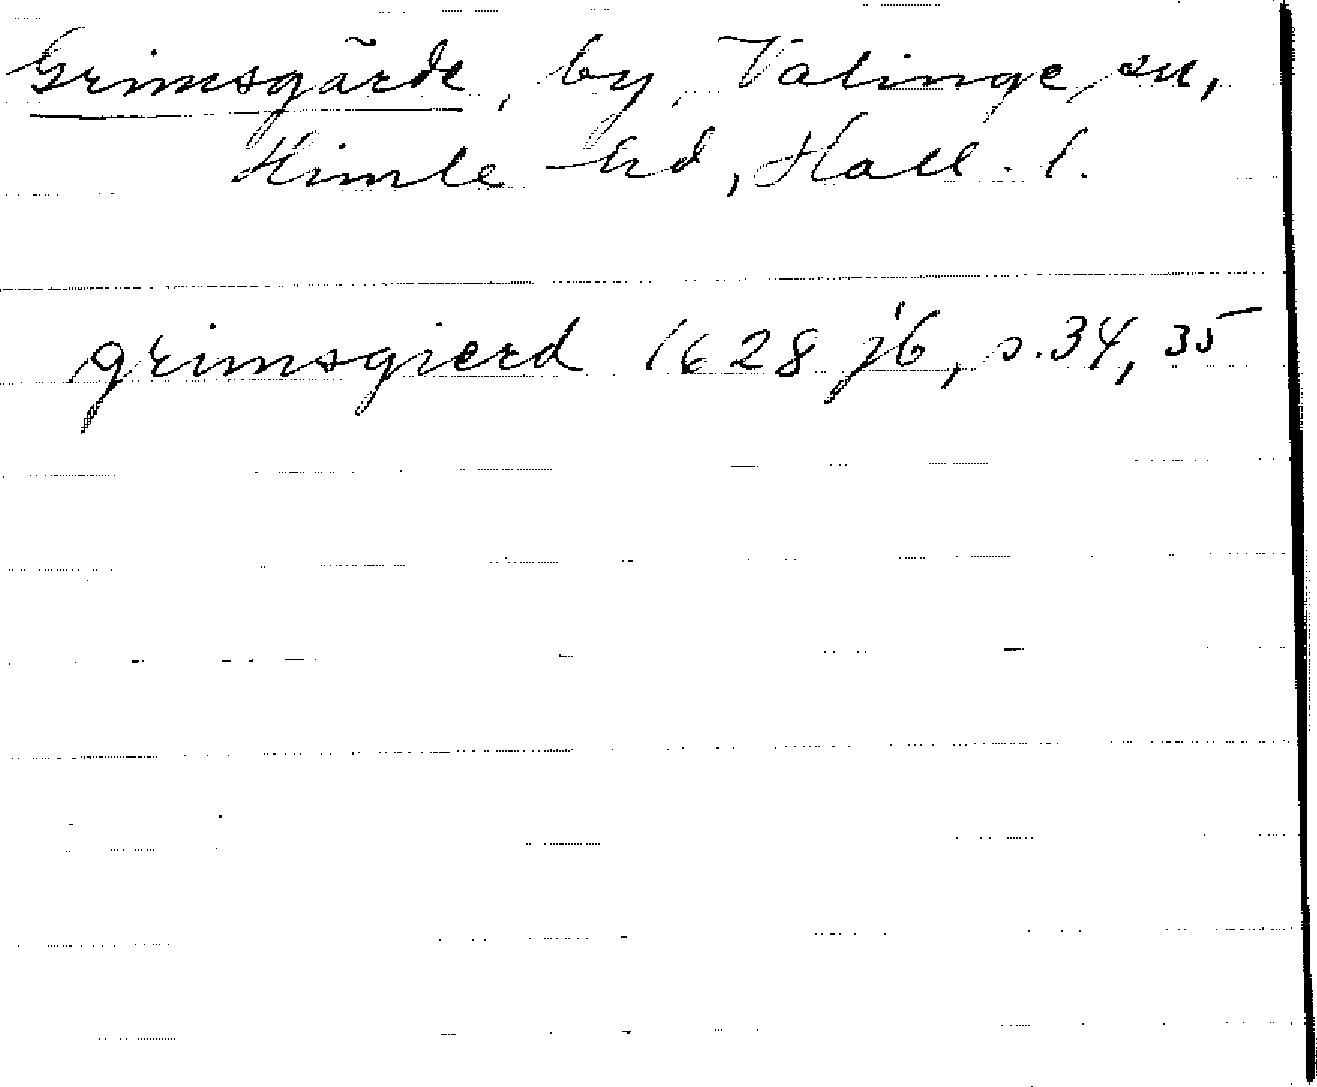 Grimsgärde, by, Valinge sn,
Himle hd, Hall. l.
grimsgierd 1628 jb, s.34, 35